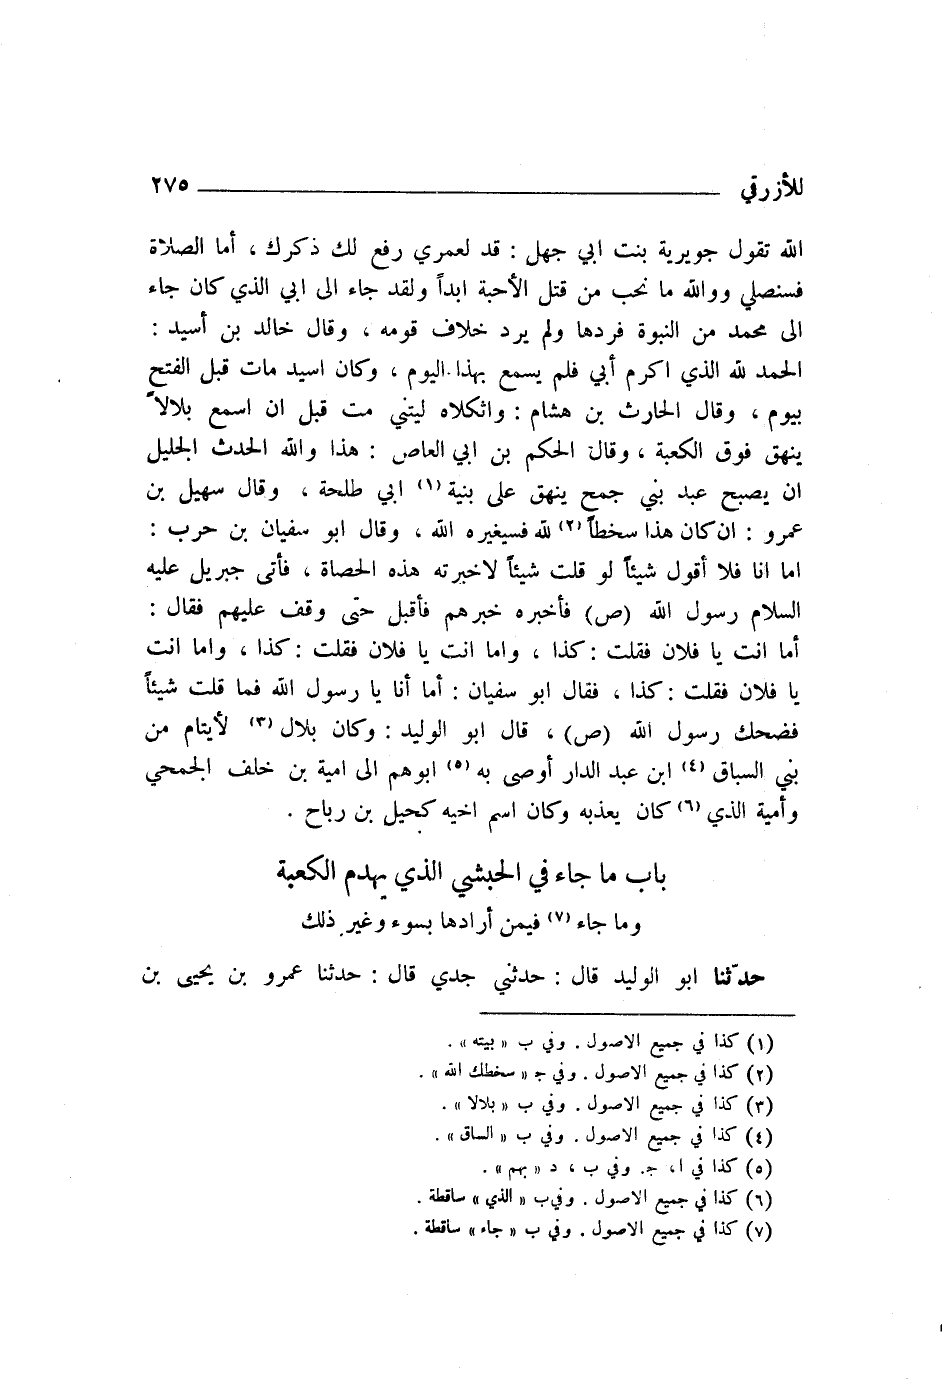 للأزرقي ٢٧٥
الله تقول جويرية بنت ابي جهل : قد لعمري رفع لك ذكرك ، أما الصلاة
فسنصلي ووالله ما نحب من قتل الأحبة ابداً ولقد جاء الى ابي الذي كان جاء
الى محمد من النبوة فردها ولم يرد خلاف قومه ، وقال خالد بن أسيد :
الحمد لله الذي اكرم أبي فلم يسمع بهذا اليوم ، وكان اسيد مات قبل الفتح
بيوم ، وقال الحارث بن هشام : واثكلاه ليتني مت قبل ان اسمع بلالاً
ينهق فوق الكعبة ، وقال الحكم بن ابي العاص : هذا والله الحدث الجليل
ان يصبح عبد بني جمح ينهق على بنية (١) ابي طلحة ، وقال سهيل بن
عمرو : ان كان هذا سخطاً (٢) لله فسيغيره الله ، وقال ابو سفيان بن حرب :
اما انا فلا أقول شيئاً لو قلت شيئاً لاخبرته هذه الحصاة ، فأتى جبريل عليه
السلام رسول الله (ص) فأخبره خبرهم فأقبل حتى وقف عليهم فقال :
أما انت يا فلان فقلت : كذا ، واما انت يا فلان فقلت : كذا ، واما انت
يا فلان فقلت : كذا ، فقال ابو سفيان : أما أنا يا رسول الله فما قلت شيئاً
فضحك رسول الله (ص) ، قال ابو الوليد : وكان بلال (٣) لأيتام من
بني السباق (٤) ابن عبد الدار أوصى به (٥) ابوهم الى امية بن خلف الجمحي
وأمية الذي (٦) كان يعذبه وكان اسم اخيه كحيل بن رباح .
باب ما جاء في الحبشي الذي يهدم الكعبة
وما جاء (٧) فيمن أرادها بسوء وغير ذلك
حدّثنا ابو الوليد قال : حدثني جدي قال : حدثنا عمرو بن يحيى بن
(١) كذا في جميع الاصول . وفي ب « بيته » .
(٢) كذا في جميع الاصول . وفي ج « سخطك الله » .
(٣) كذا في جميع الاصول . وفي ب « بلالا » .
(٤) كذا في جميع الاصول . وفي ب « الساق » .
(٥) كذا في ا ، ج . وفي ب ، د « بهم » .
(٦) كذا في جميع الاصول . وفي ب « الذي » ساقطة .
(٧) كذا في جميع الاصول . وفي ب « جاء » ساقطة .